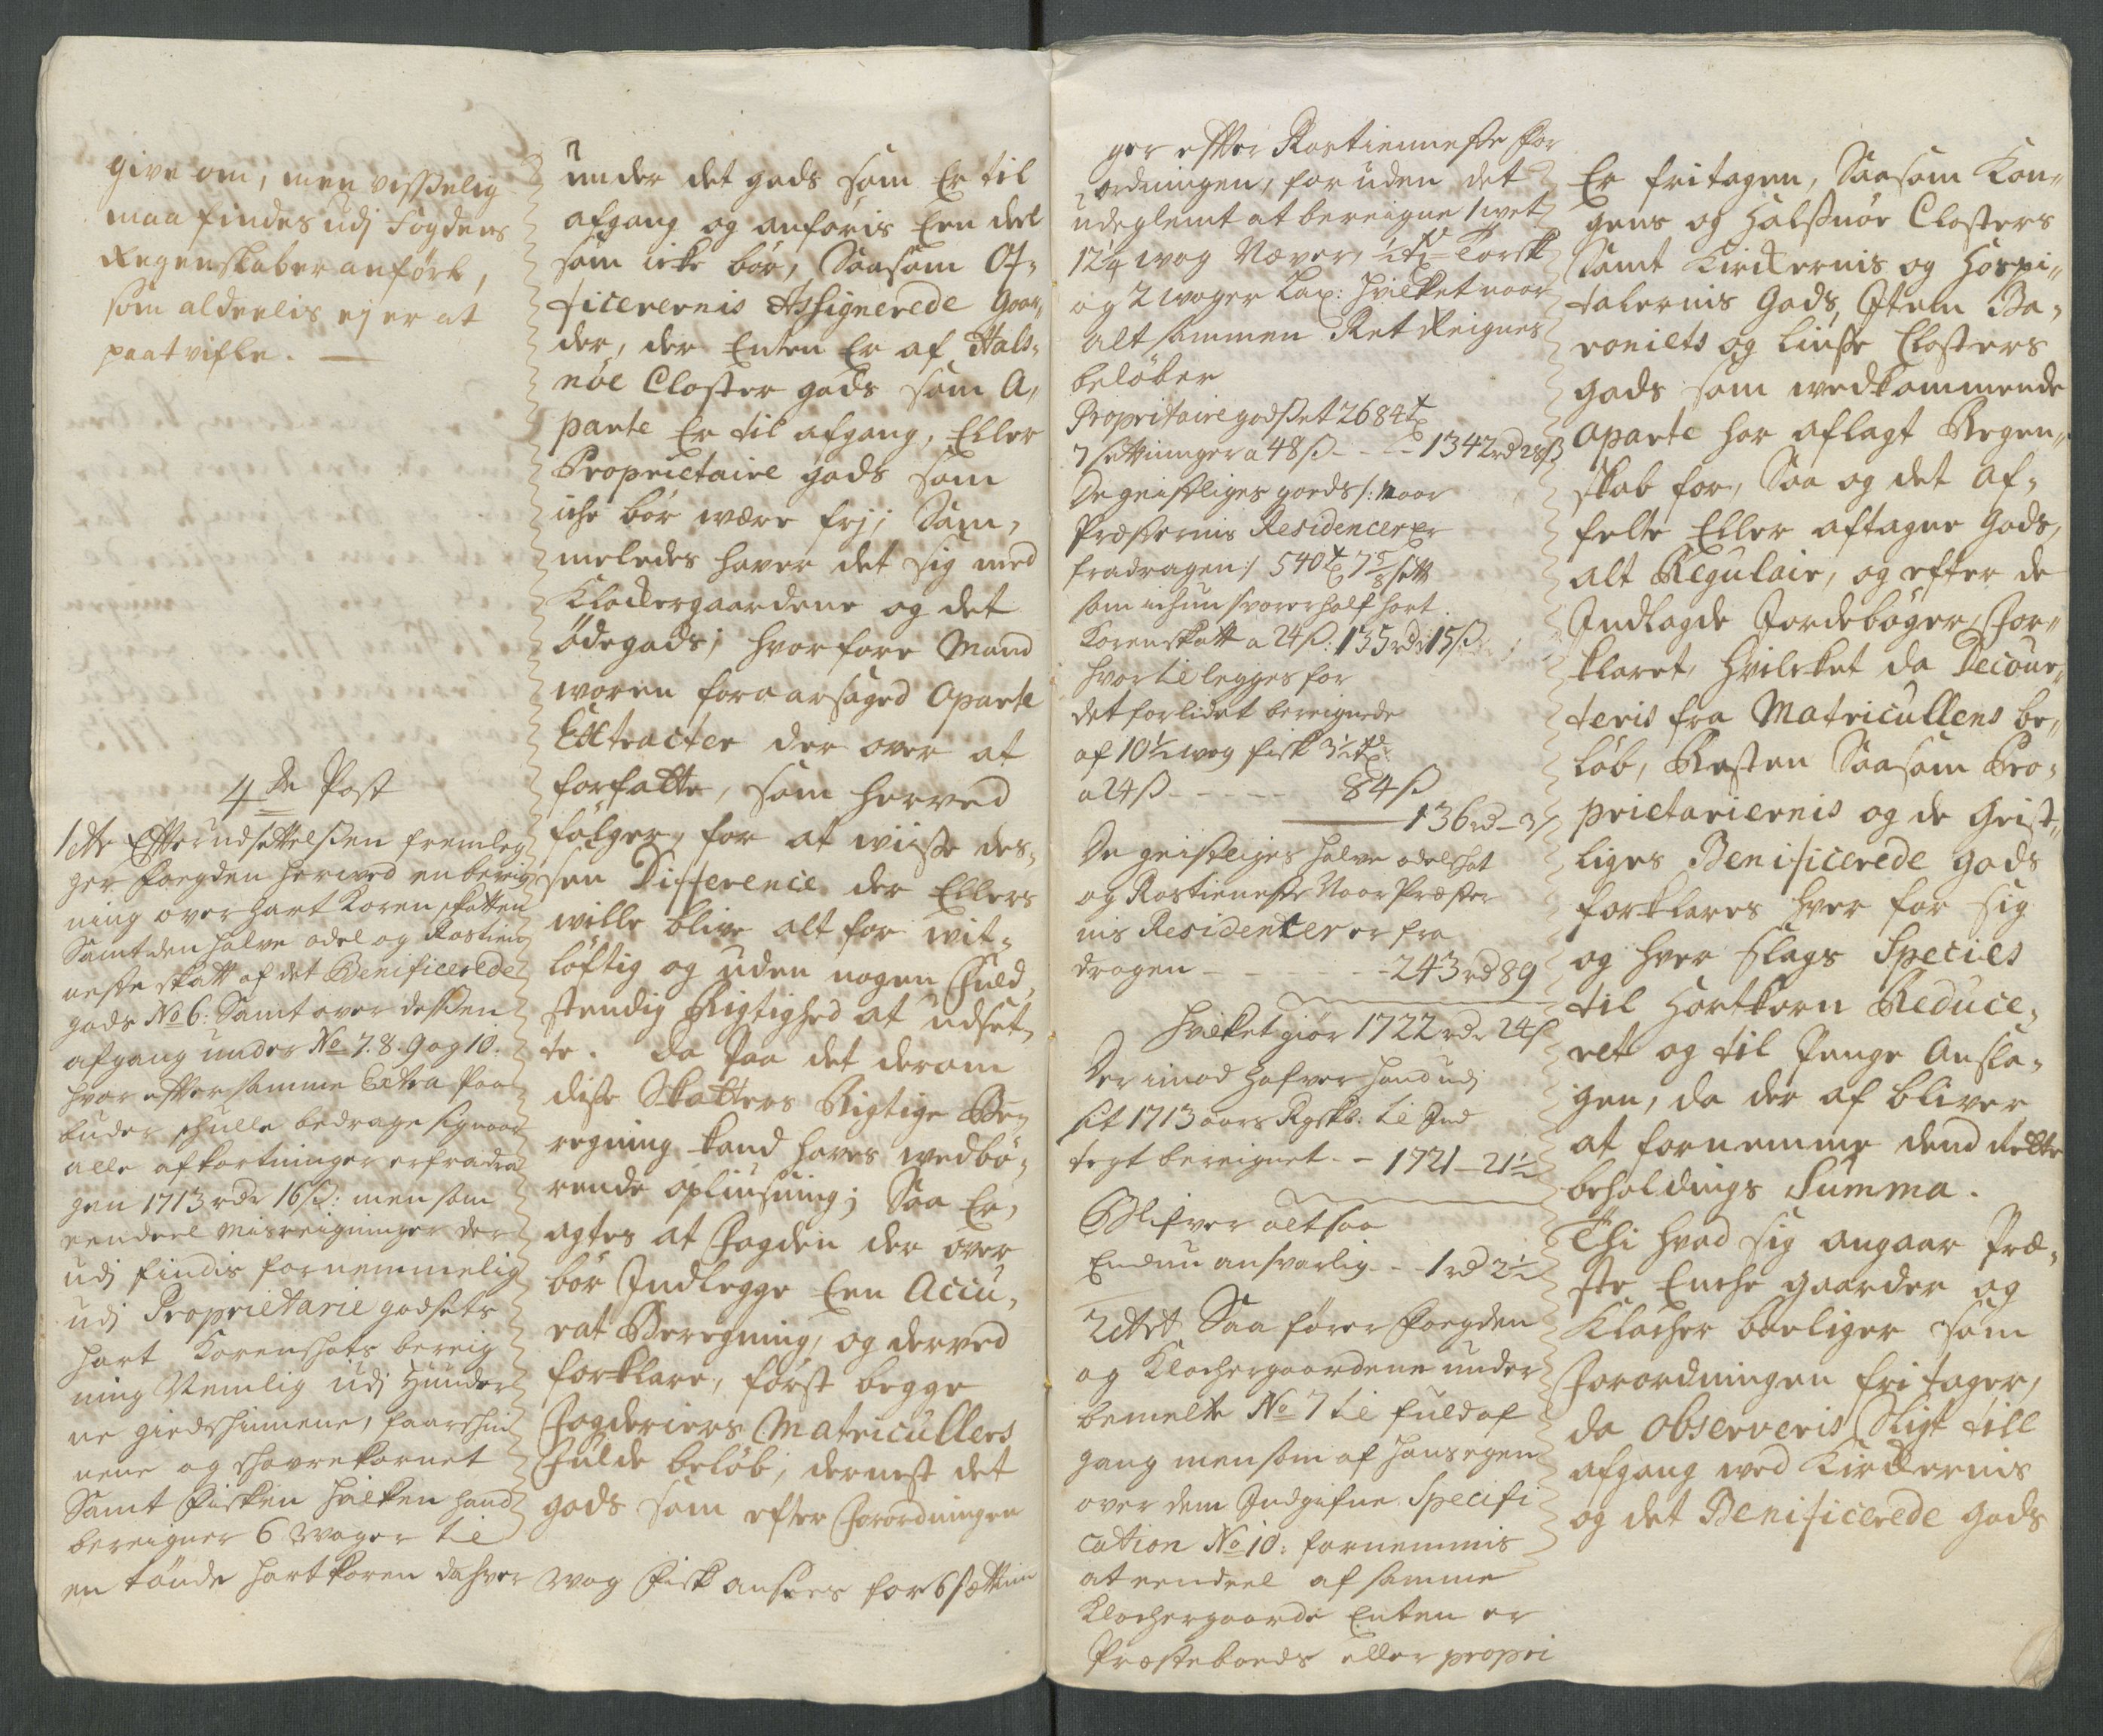 give om, men visselig
maa findes udj Fogdens
Regenskaber anført,
som alderlis ej er at
paatvifle. —
4de Post
1ste Effter udsettelsen fremleg
ger Foegden herved en bereig
ning over Hart Koren skatten
Samt den halve odel og Rostien
neste skatt af det Benificerede
gods No 6: Samt over dessen
afgang under No 7. 8. 9 og 10.
hvor effter samme Extra Paa
buder schulle bedrage sig naar
alle afkortninger er fradra
gen 1713 rdr 16 ß: men som
eendeel misreigninger der
udj findis fornemmelig
udj Proprietarie godsets
hart Korenshats bereig
ning Nemlig udj Hunder
ne giedeshinnene, faareshin
nene og shovrekornet
Samt Fisken hvilken hand
bereigner 6 woger til
en tønde hart koren da hver
under det gods som Er til
afgang og anføris Een deel
som icke bør, Saasom Of-
ficerernis Assignerede Gaar-
der, der Enten Er af Hals-
nøe Closter gods som A-
parte Er til afgang, Eller
Proprietaire gods som
iche bør være frj; Sam-
meledes haver det sig med
Klockergaardene og det
Ødegods; hvorfore Mand
woren foraarsaged aparte
Extracter der over at
forfatte, som herved
følger, for at wiisse des-
sen Difference der Ellers
wille blive alt for wit-
løftig og uden nogen Fuld-
stendig Rigtighed at udset-
te. Da Paa det derom
disse Skatters Rigtige Be-
regning kand haves wedbø-
rende oplysning; Saa Er-
agtes at Fogden der over
bør Indlegge Een Accu-
rat Beregning, og derved
forklare, først begge
Fogderiers Matricullers
Fulde beløb, dernest det
gods som efter Forordningen
wog Fisk ansees for 6 settin
ger effter Rostienneste For
ordningen, foruden det
udeglemt at bereigne 1 wet
12¼ wog Næver, ½ td Torsk
og 2 woger Lax: hvilket naar
alt sammen Ret Reignes
beløber
Propritaire godset 2684 td
7 settninger a 48 ß - - - 1342 rd 28 ß
De geistliges goeds /: naar
Præsternis Residencer Er
fradragen :/ 540 td 7⅝ sett
som ichun svarer half hart
Korenskatt a 24 ß: 135 rdr 15 ß
hvortil legges for
det forlidet bereignede
af 10½ wog fisk 3½ td:
a 24 ß - - - - - 84 ß
136 rd - 3 ß
De geistliges halve odelshat
og Rostieneste Naar Præster
nis Residentzer er fra
dragen - - - - 243 rd 89
hvilket giør 1722 rdr 24 ß
Der imod hafver hand udj
sit 1713 aars Rgskb: til Ind
tegt bereignet - - 1721 - 21½
Blifver altsaa
Endnu ansvarlig - - 1 rd 2½
2det Saa fører Foegden
og Klochergaardene under
bemelte No 7 til fuld af
gang men som af hans egen
over dem Indgifne Specifi
cation No 10: fornemmis
at eendeel af samme
Klochergaarde Enten er
Præsteboeds eller propri
Er fritagen, Saasom Kon-
gens og Halsnøe Closters
Samt Kirckernis og Hospi-
talernis Gods, Item Ba-
roniets og Liuse Closters
gods som wedkommende
aparte har aflagt Regen-
skab for, Saa og det Af-
felte Eller aftagne Gods,
alt Regulair, og efter de
Indlagde Jordebøger, For-
klaret, hvilcket da Decour-
teris fra Matricullens be-
løb, Resten Saasom Pro-
prietariernis og de Geist-
liges Benificerede Gods
forklares hver for sig
og hver slags Species
til Hortkorn Reduce-
ret og til Penge Ansla-
gen, da der af bliver
at fornemme dend rette
beholdings Summa.
Thi hvad sig angaar Præ-
ste Enche gaarder og
Klocher boeliger som
Forordningen fritager,
da observeris Sligt till
afgang wed Kirckernis
og det Benificerede Gods